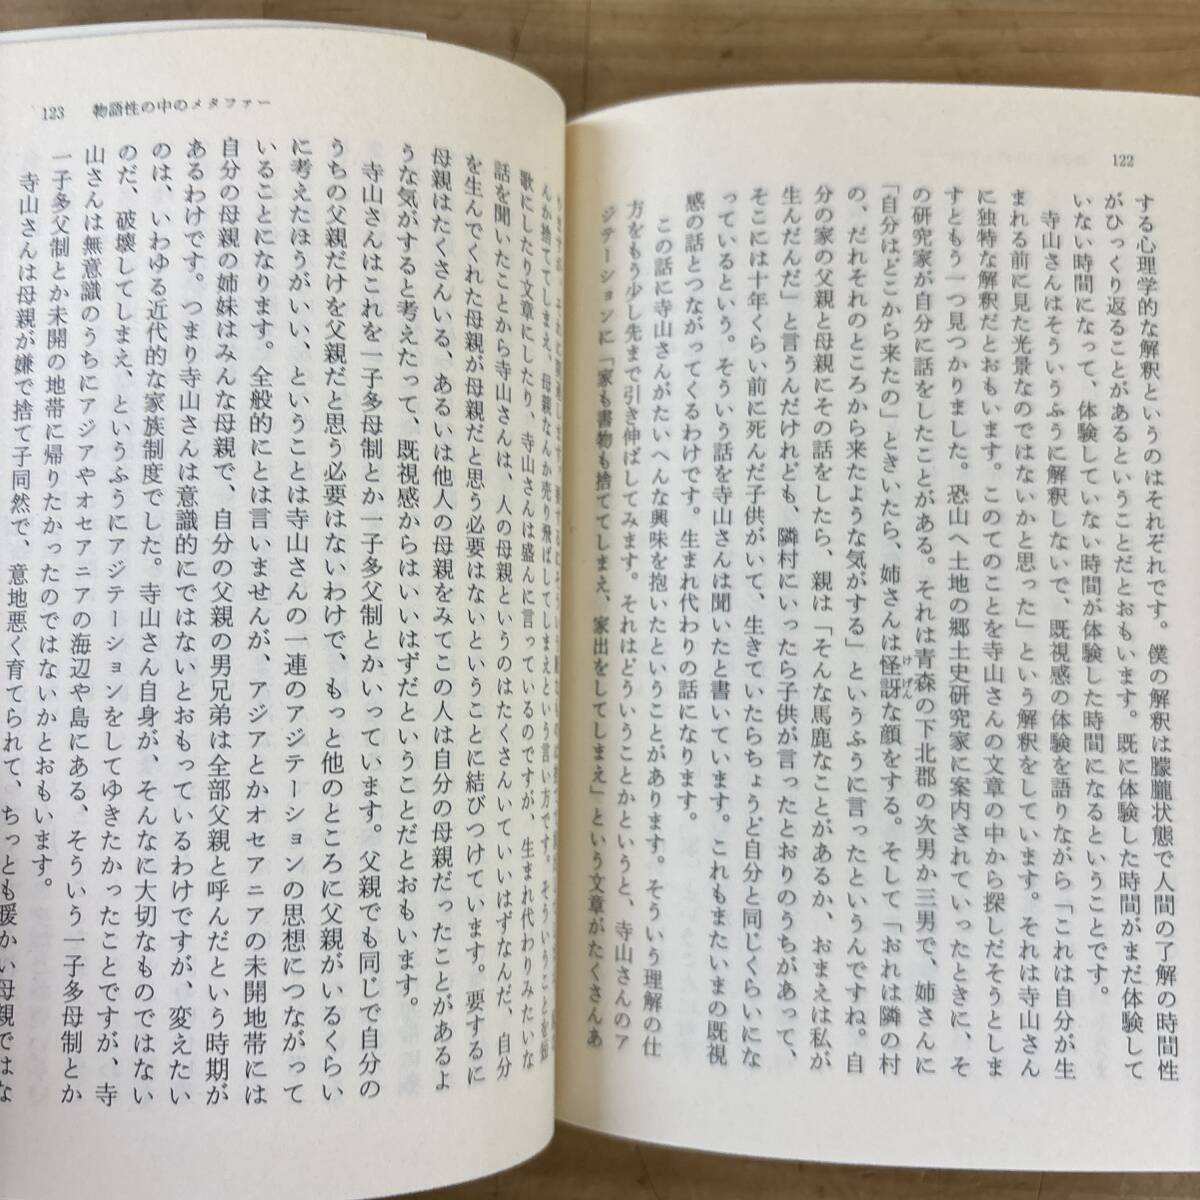 122
する心理学的な解釈というのはそれぞれです。僕の解釈は朦朧状態で人間の了解の時間性
がひっくり返ることがあるということだとおもいます。既に体験した時間がまだ体験して
いない時間になって、体験していない時間が体験した時間になるということです。
寺山さんはそういうふうに解釈しないで、既視感の体験を語りながら「これは自分が生
まれる前に見た光景なのではないかと思った」という解釈をしています。それは寺山さん
に独特な解釈だとおもいます。このてのことを寺山さんの文章の中から探しだそうとしま
すともう一つ見つかりました。恐山へ土地の郷土史研究家に案内されていったときに、そ
の研究家が自分に話をしたことがある。それは青森の下北郡の次男か三男で、姉さんに
「自分はどこから来たの」ときいたら、姉さんは怪訝な顔をする。そして「おれは隣の村
けげん
の、だれそれのところから来たような気がする」というふうに言ったというんですね。自
分の家の父親と母親にその話をしたら、親は「そんな馬鹿なことがあるか、おまえは私が
生んだんだ」と言うんだけれども、隣村にいったら子供が言ったとおりのうちがあって、
そこには十年くらい前に死んだ子供がいて、生きていたらちょうど自分と同じくらいにな
っているという。そういう話を寺山さんは聞いたと書いています。これもまたいまの既視
感の話とつながってくるわけです。生まれ代わりの話になります。
この話に寺山さんがたいへんな興味を抱いたということがあります。そういう理解の仕
方をもう少し先まで引き伸ばしてみます。それはどういうことかというと、寺山さんのア
ジテーションに「家も書物も捨ててしまえ、家出をしてしまえ」という文章がたくさんあ
123 物語性の中のメタファー
んか捨ててしまえ、母親なんか売り飛ばしてしまえという言い方です。そういうことを短
歌にしたり文章にしたり、寺山さんは盛んに言っているのですが、生まれ代わりみたいな
話を聞いたことから寺山さんは、人の母親というのはたくさんいていいはずなんだ、自分
を生んでくれた母親が母親だと思う必要はないということに結びつけています。要するに
母親はたくさんいる、あるいは他人の母親をみてこの人は自分の母親だったことがあるよ
うな気がすると考えたって、既視感からはいいはずだということだとおもいます。
寺山さんはこれを一子多母制とか一子多父制とかいっています。父親でも同じで自分の
うちの父親だけを父親だと思う必要はないわけで、もっと他のところに父親がいるくらい
に考えたほうがいい、ということは寺山さんの一連のアジテーションの思想につながって
いることになります。全般的にとは言いませんが、アジアとかオセアニアの未開地帯には
自分の母親の姉妹はみんな母親で、自分の父親の男兄弟は全部父親と呼んだという時期が
あるわけです。つまり寺山さんは意識的にではないとおもっているわけですが、変えたい
のは、いわゆる近代的な家族制度でした。寺山さん自身が、そんなに大切なものではない
のだ、破壊してしまえ、というふうにアジテーションをしてゆきたかったことですが、寺
山さんは無意識のうちにアジアやオセアニアの海辺や島にある、そういう一子多母制とか
一子多父制とか未開の地帯に帰りたかったのではないかとおもいます。
寺山さんは母親が嫌で捨て子同然で、意地悪く育てられて、ちっとも暖かい母親ではな